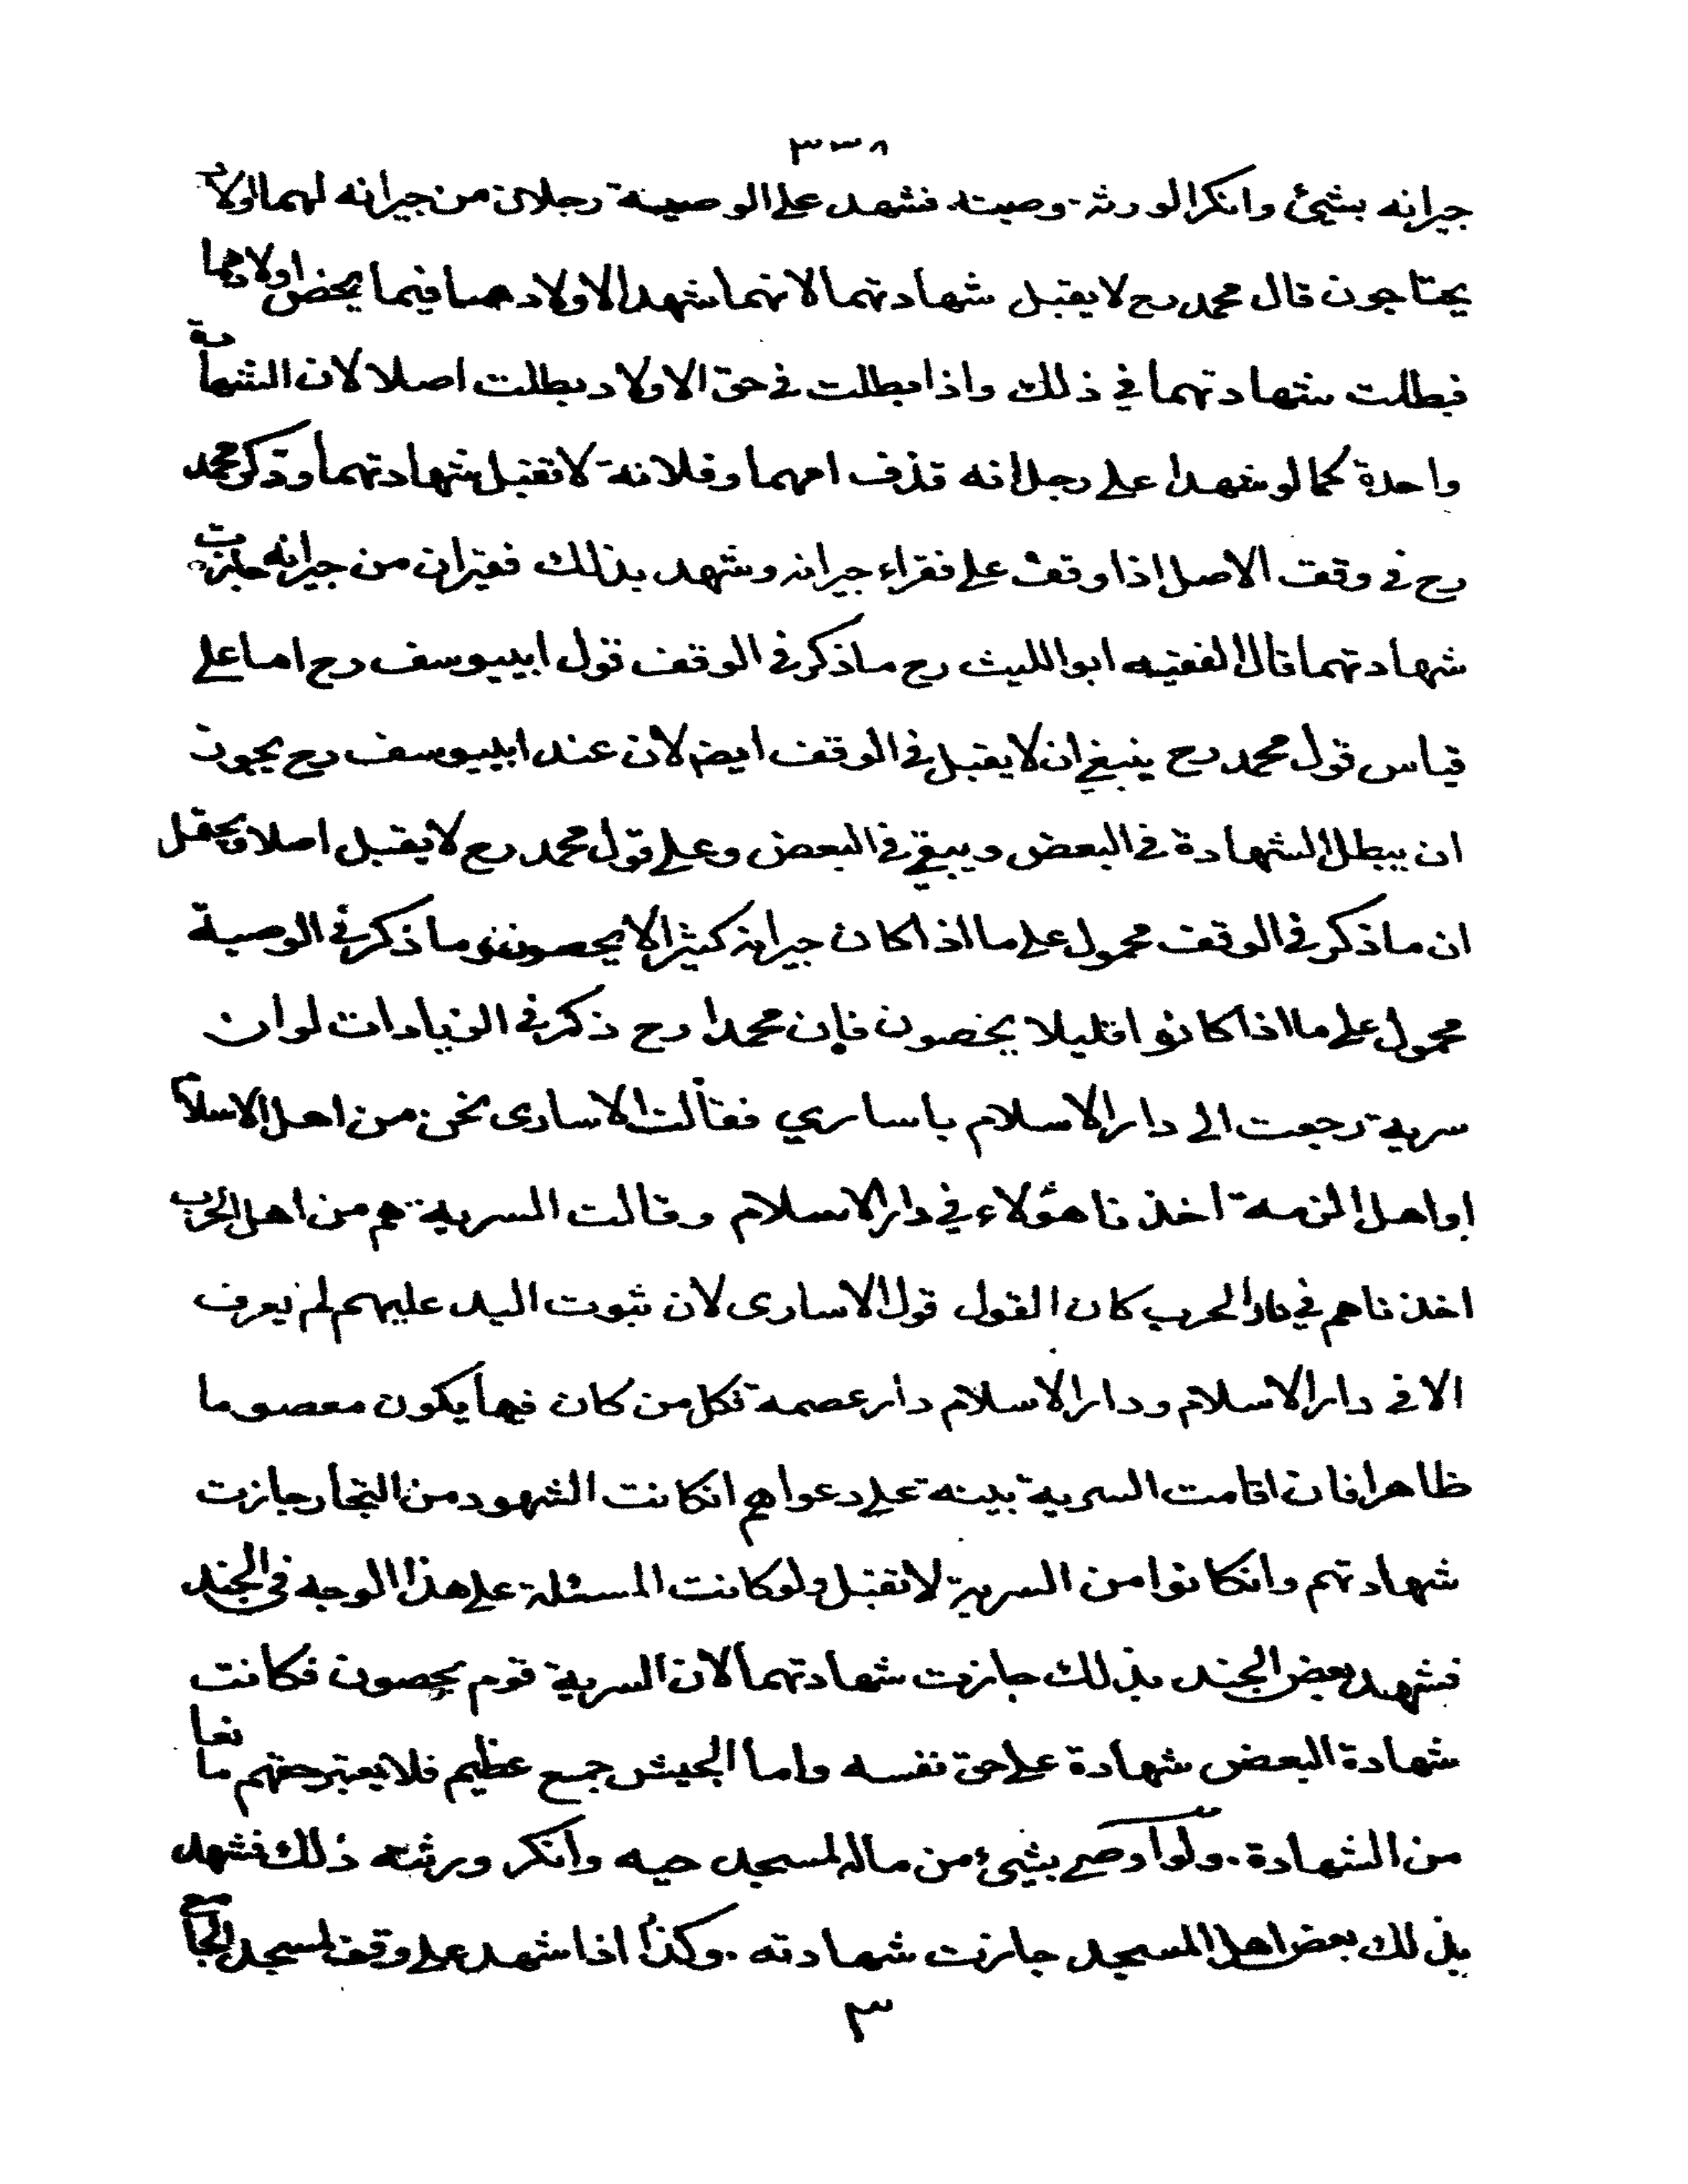 ٣٣٨
جيرانه بشئ وانكر الورثة وصيته فشهد على الوصية رجلان من جيرانه لهما اولاد
يحتاجون قال محمد رح لا يقبل شهادتهما لانهما شهدا لاولادهما فيما يخص اولادهما
فبطلت شهادتهما في ذلك واذا بطلت في حق الاولاد بطلت اصلا لان الشهادة
واحدة كما لو شهدا على رجل انه قذف امهما وفلانة لا تقبل شهادتهما وذكر محمد
رح في وقف الاصل اذا وقف على فقراء جيرانه وشهد بذلك فقيران من جيرانه جازت
شهادتهما قال الفقيه ابو الليث رح ما ذكر في الوقف قول ابييوسف رح اما على
قياس قول محمد رح ينبغي ان لا يقبل في الوقف ايض لان عند ابييوسف رح يجوز
ان يبطل الشهادة في البعض ويبقي في البعض وعلى قول محمد رح لا يقبل اصلا ويحتمل
ان ما ذكر في الوقف محمول على ما اذا كان جيرانه كثيرا لا يحصون وما ذكر في الوصية
محمول على ما اذا كانوا قليلا يحصون فإن محمدا رح ذكر في الزيادات لو ان
سرية رجعت الى دار الاسلام باساري فقالت الاسارى نحن من اهل الاسلام
او اهل الذمة اخذنا هؤلاء في دار الاسلام وقالت السرية هم من اهل الحرب
اخذناهم في دار الحرب كان القول قول الاسارى لان ثبوت اليد عليهم لم يعرف
الا في دار الاسلام ودار الاسلام دار عصمة فكل من كان فيها يكون معصوما
ظاهرا فان اقامت السرية بينة على دعواهم انكانت الشهود من التجار جازت
شهادتهم وانكانوا من السرية لا تقبل ولو كانت المسئلة على هذا الوجه في الجند
فشهد بعض الجند بذلك جازت شهادتهما لان السرية قوم يحصون فكانت
شهادة البعض شهادة على حق نفسه واما الجيش جمع عظيم فلا يعتبر حقهم مانعا
من الشهادة . ولو اوصى بشئ من ماله لمسجد حيه وانكر ورثته ذلك فشهد
بذلك بعض اهل المسجد جازت شهادته . وكذا اذا شهد على وقف لمسجد الجامع
٣